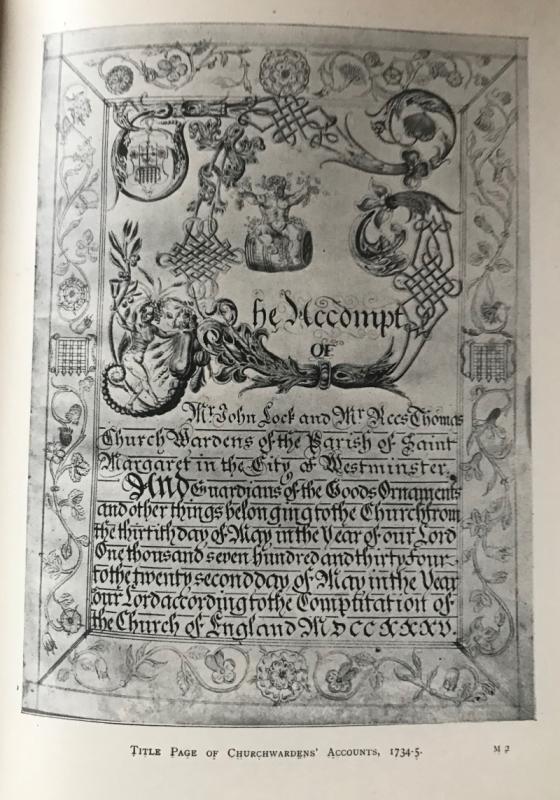 The Accompt
OF
Mr. John Lock and Mr Rees Thomas
Church Wardens of the Parish of Saint
Margaret in the City of Westminster.
And Guardians of the Goods Ornaments
and other things belonging to the Church from
the thirtith day of May in the Year of our Lord
One thousand seven hundred and thirty four
to the twenty second day of May in the Year
our Lord according to the Comptitation of
the Church of England MDCCXXXV.
TITLE PAGE OF CHURCHWARDENS' ACCOUNTS, 1734-5.
M 2